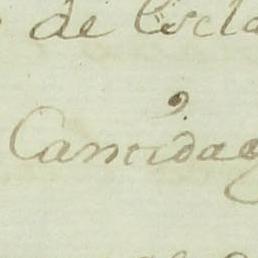 de Escla
Cantidad